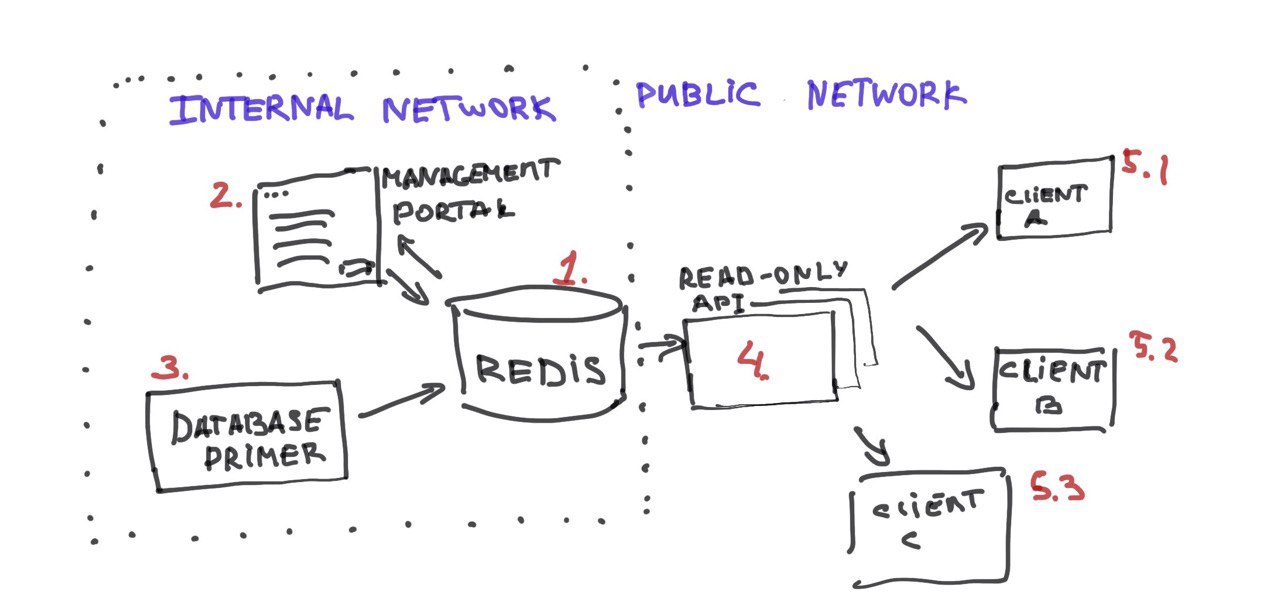 INTERNAL NETWORK
PUBLIC NETWORK
2.
MANAGEMENT
PORTAL
1.
REDiS
3.
DATABASE
PRiMER
READ-ONLY
API
4.
CLiENT
A
5.1
CLiENT
B
5.2
CLiENT
C
5.3